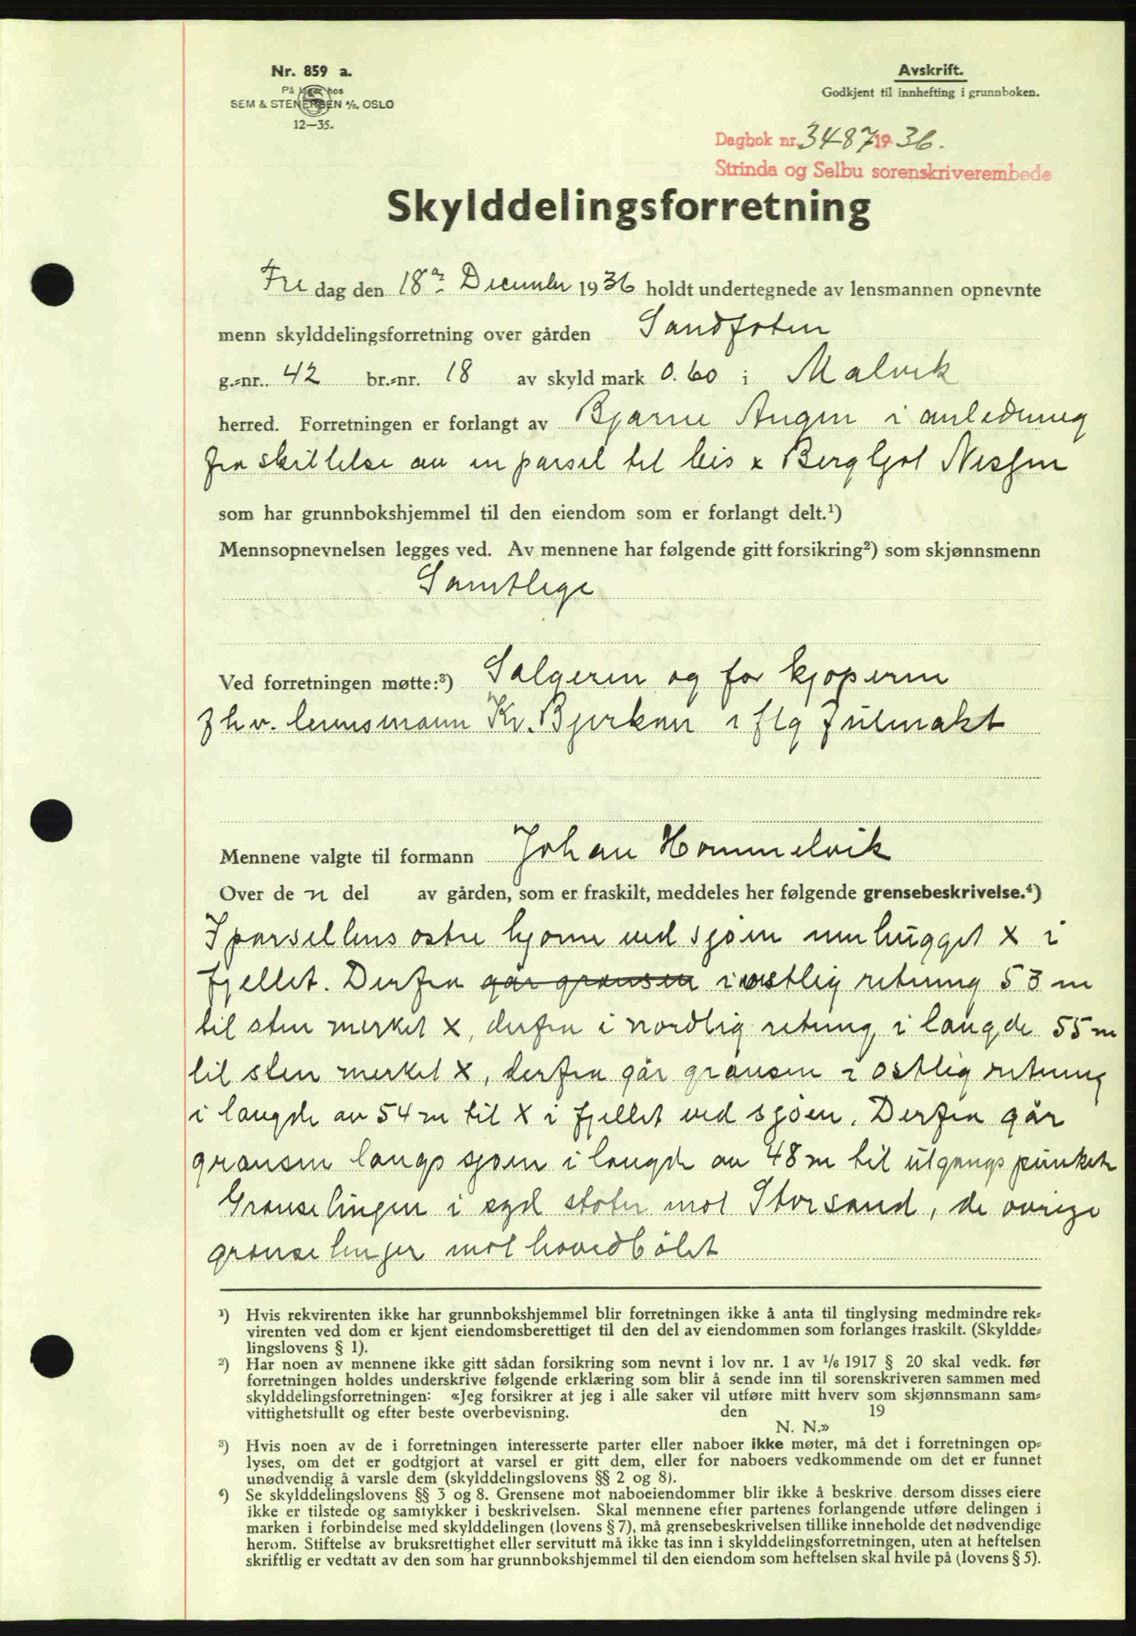 Nr. 859 a.
På lager hos
SEM & STENERSEN A/S. OSLO
12—35.
Avskrift.
Godkjent til innhefting i grunnboken.
Dagbok nr. 3487 1936.
Strinda og Selbu sorenskriverembede
Skylddelingsforretning
Fredag den 18de December 1936 holdt undertegnede av lensmannen opnevnte
menn skylddelingsforretning over gården Sandfoten
g.-nr. 42 br.-nr. 18 av skyld mark 0.60 i Malvik
herred. Forretningen er forlangt av Bjarne Augen i anledning
fra skillelse av en parsel til Bergljot
som har grunnbokshjemmel til den eiendom som er forlangt delt.¹)
Mennsopnevnelsen legges ved. Av mennene har følgende gitt forsikring²) som skjønnsmenn
Samtlige
Ved forretningen møtte:³) Selgeren og for kjøperen
fhv. lennsmann Kr. Bjerkan iflg fullmakt
Mennene valgte til formann Johan Hommelvik
Over den del av gården, som er fraskilt, meddeles her følgende grensebeskrivelse.⁴)
I parsellens østre hjørne ved sjøen nedhugget X i
fjellet. Derfra går grensen i vestlig retning 53 m
til sten merket X, derfra i nordlig retning i langde 55 m
til sten merket X, derfra går gransen i ostlig retning
i langde av 54 m til X i fjellet ved sjøen. Derfra går
gransen langs sjøen i langde av 48 m til utgangspunktet
Granselingen i syd støter mot Storsand, de øvrige
granselinjer mot hovedbølet
¹) Hvis rekvirenten ikke har grunnbokshjemmel blir forretningen ikke å anta til tinglysing medmindre rek-
virenten ved dom er kjent eiendomsberettiget til den del av eiendommen som forlanges fraskilt. (Skyldde-
lingslovens § 1).
²) Har noen av mennene ikke gitt sådan forsikring som nevnt i lov nr. 1 av 1/6 1917 § 20 skal vedk. før
forretningen holdes underskrive følgende erklæring som blir å sende inn til sorenskriveren sammen med
skylddelingsforretningen: «Jeg forsikrer at jeg i alle saker vil utføre mitt hverv som skjønnsmann sam-
vittighetsfullt og efter beste overbevisning. den 19
N. N.»
³) Hvis noen av de i forretningen interesserte parter eller naboer ikke møter, må det i forretningen op-
lyses, om det er godtgjort at varsel er gitt dem, eller for naboers vedkommende om det er funnet
unødvendig å varsle dem (skylddelingslovens §§ 2 og 8).
⁴) Se skylddelingslovens §§ 3 og 8. Grensene mot naboeiendommer blir ikke å beskrive dersom disses eiere
ikke er tilstede og samtykker i beskrivelsen. Skal mennene efter partenes forlangende utføre delingen i
marken i forbindelse med skylddelingen (lovens § 7), må grensebeskrivelsen tillike inneholde det nødvendige
herom. Stiftelse av bruksrettighet eller servitutt må ikke tas inn i skylddelingsforretningen, uten at heftelsen
skriftlig er vedtatt av den som har grunnbokshjemmel til den eiendom som heftelsen skal hvile på (lovens § 5).